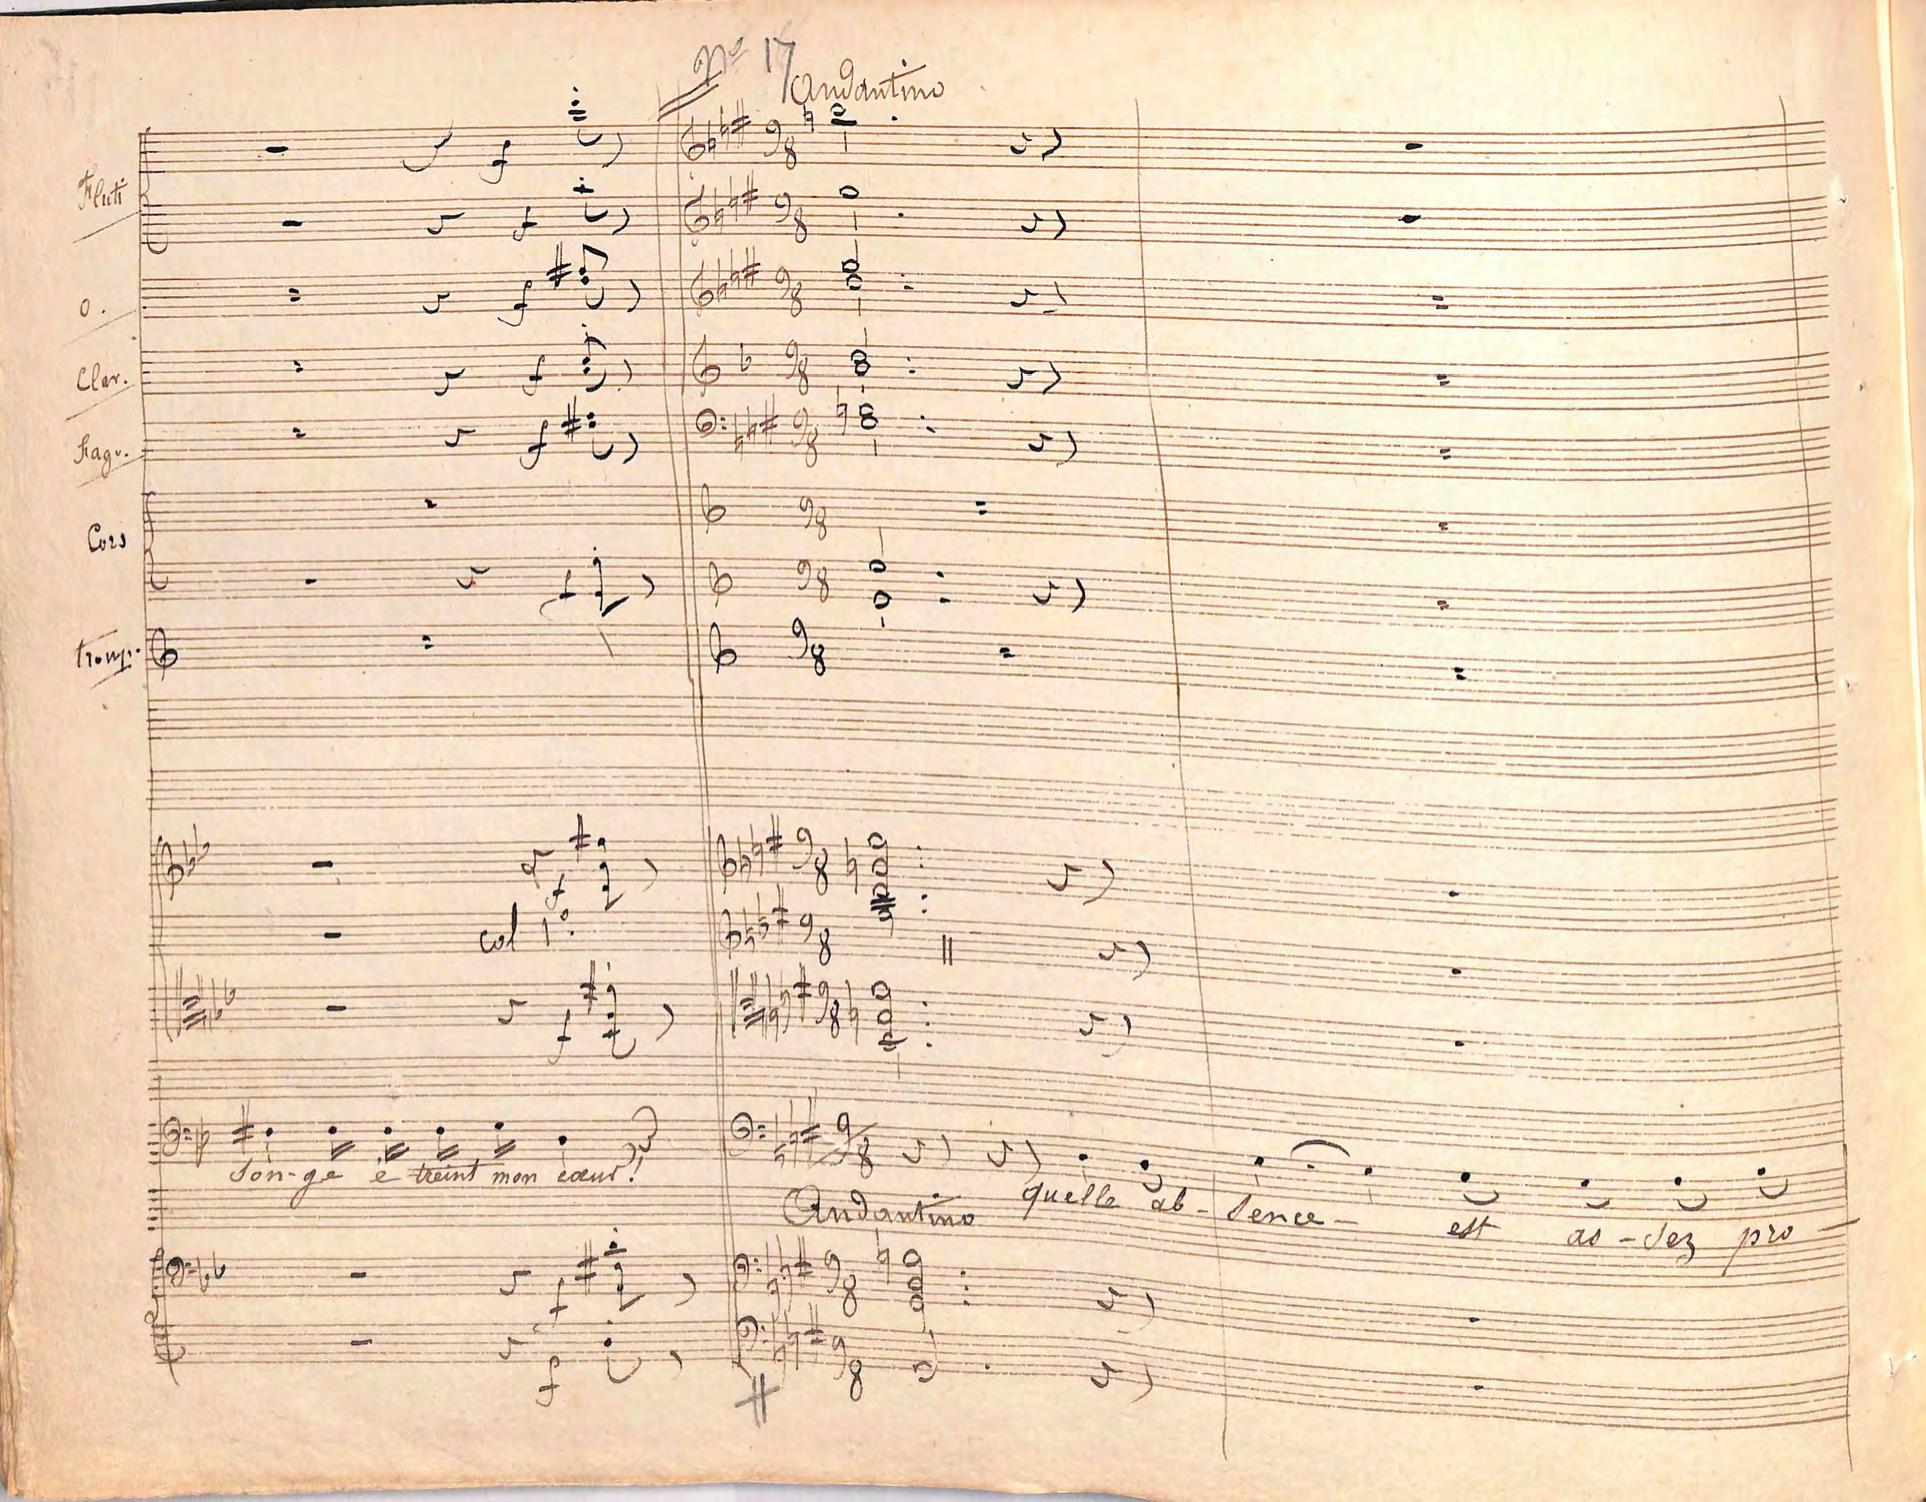 No 17
Andantino
Fluti
O.
Clar.
Fagv.
Cors
tromp.
col 1o
Son-ge é treint mon cœur!
quelle ab- sence - est as-sez pro -
Andantino